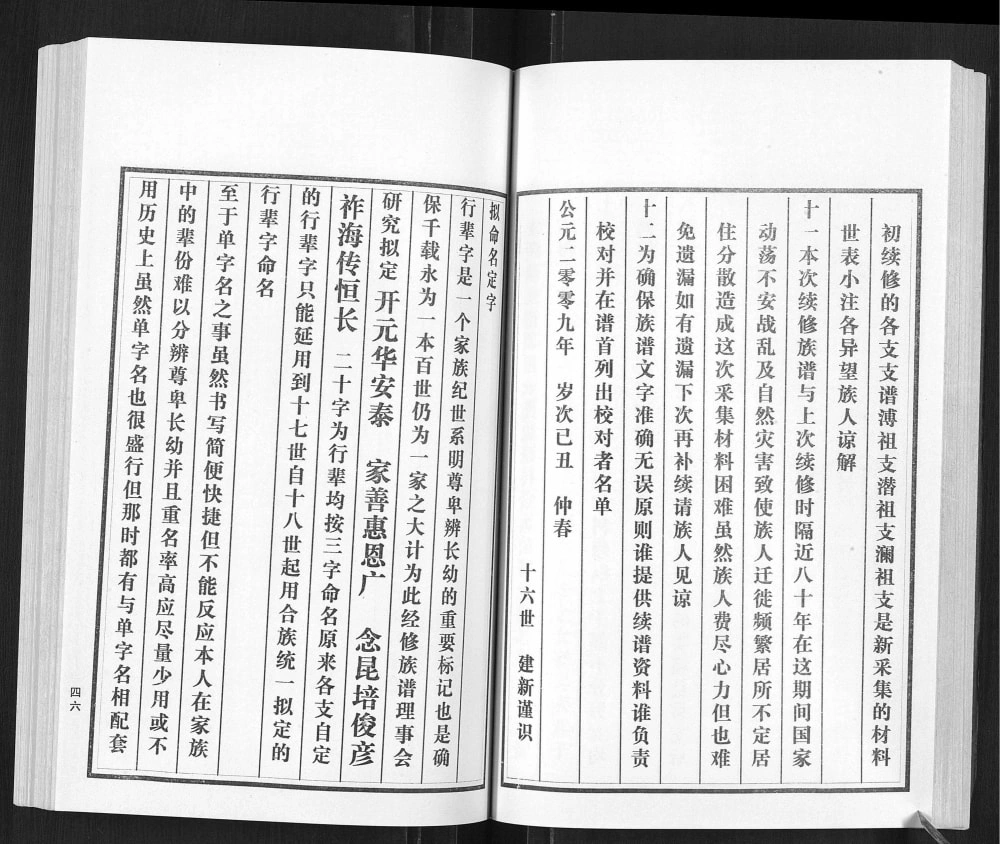 初续修的各支支谱溥祖支潜祖支澜祖支是新采集的材料
世表小注各异望族人谅解
十一本次续修族谱与上次续修时隔近八十年在这期间国家
动荡不安战乱及自然灾害致使族人迁徙频繁居所不定居
住分散造成这次采集材料困难虽然族人费尽心力但也难
免遗漏如有遗漏下次再补续请族人见谅
十二为确保族谱文字准确无误原则谁提供续谱资料谁负责
校对并在谱首列出校对者名单
公元二零零九年 岁次已丑 仲春
十六世 建新谨识
拟命名定字
行辈字是一个家族纪世系明尊卑辨长幼的重要标记也是确
保千载永为一本百世仍为一家之大计为此经修族谱理事会
研究拟定 开元华安泰 家善惠恩广 念昆培俊彦
祚海传恒长 二十字为行辈均按三字命名原来各支自定
的行辈字只能延用到十七世自十八世起用合族统一拟定的
行辈字命名
至于单字名之事虽然书写简便快捷但不能反应本人在家族
中的辈份难以分辨尊卑长幼并且重名率高应尽量少用或不
用历史上虽然单字名也很盛行但那时都有与单字名相配套
四六